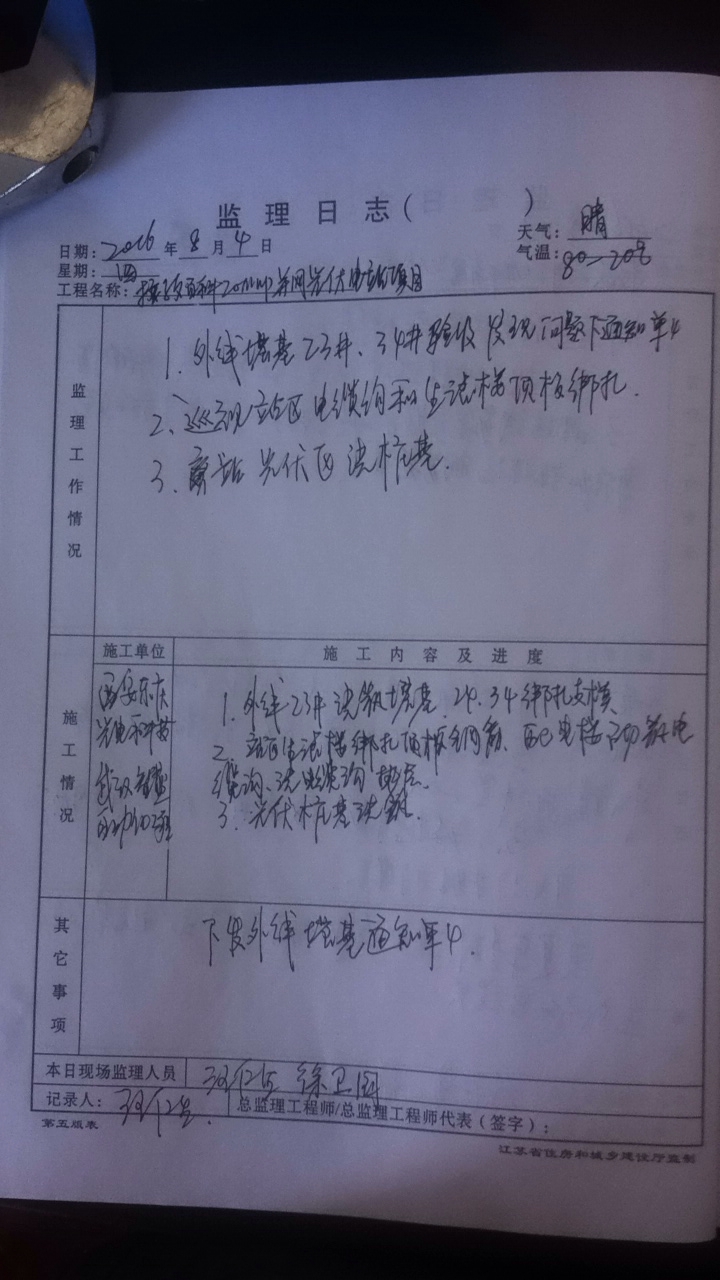 监理日志( )
日期: 2016 年 8 月 4 日
天气: 晴
星期: 四
气温:
工程名称: 20MW并网光伏电站项目
监理工作情况
1. 外线塔基23井、34井验收发现问题下通知单4
2、巡视站区电缆沟和生活楼顶板绑扎.
3、旁站光伏区浇桩基.
施工情况
施工单位
施工内容及进度
西安
光电
武汉
1. 外线23井浇筑塔基. 24. 34绑扎支模
2. 站区生活楼绑扎顶板钢筋、配电楼 电
缆沟、浇电缆沟垫层.
3. 光伏桩基浇筑.
其它事项
下发外线塔基通知单4.
本日现场监理人员 徐卫国
记录人:
总监理工程师/总监理工程师代表(签字):
第五版表
江苏省住房和城乡建设厅监制